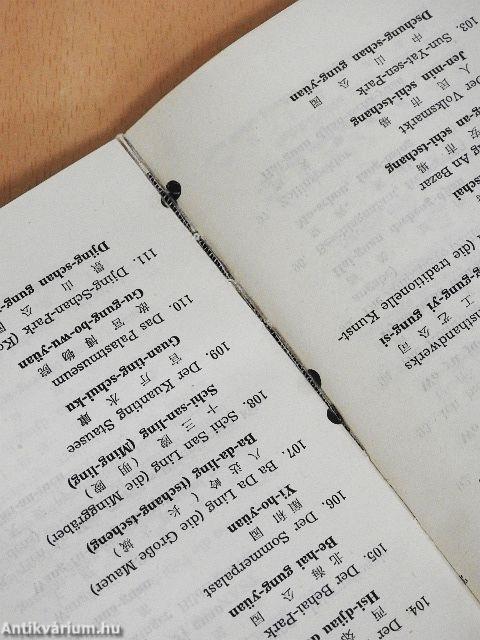 工艺公司
gung-yi gung-si
(die traditionelle Kunst-
An Bazar
安市場
schi-tschang
Der Volksmarkt
人民市場
Jen-min schi-tschang
103. Sun-Yat-sen-Park
中山公園
Dschung-schan gung-yüan
104. Der
西郊
Hsi-djiau
105. Der Behai-Park
北海公園
Be-hai gung-yüan
106. Der Sommerpalast
頤和園
Yi-ho-yüan
107. Ba Da Ling (die Große Mauer)
八达岭(长城)
Ba-da-ling (tschang-tscheng)
108. Schi San Ling (die Minggräber)
十三陵(明陵)
Schi-san-ling (Ming-ling)
109. Der Kuanting Stausee
官厅水庫
Guan-ting-schui-ku
110. Das Palastmuseum
故宮博物院
Gu-gung-bo-wu-yüan
111. Djing-Schan-Park
景山公
Djing-schan gung-
Antikvárium.hu